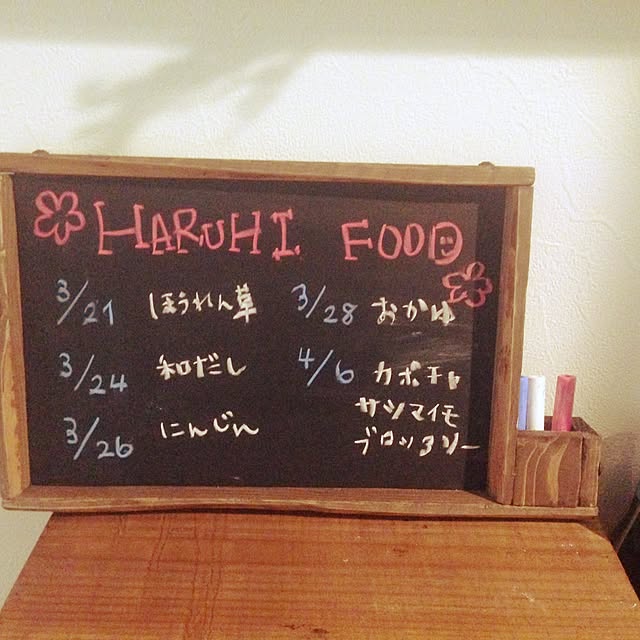 HARUHI FOOD
3/21 ほうれん草
3/24 和だし
3/26 にんじん
3/28 おかゆ
4/6 カボチャ
サツマイモ
ブロッコリー